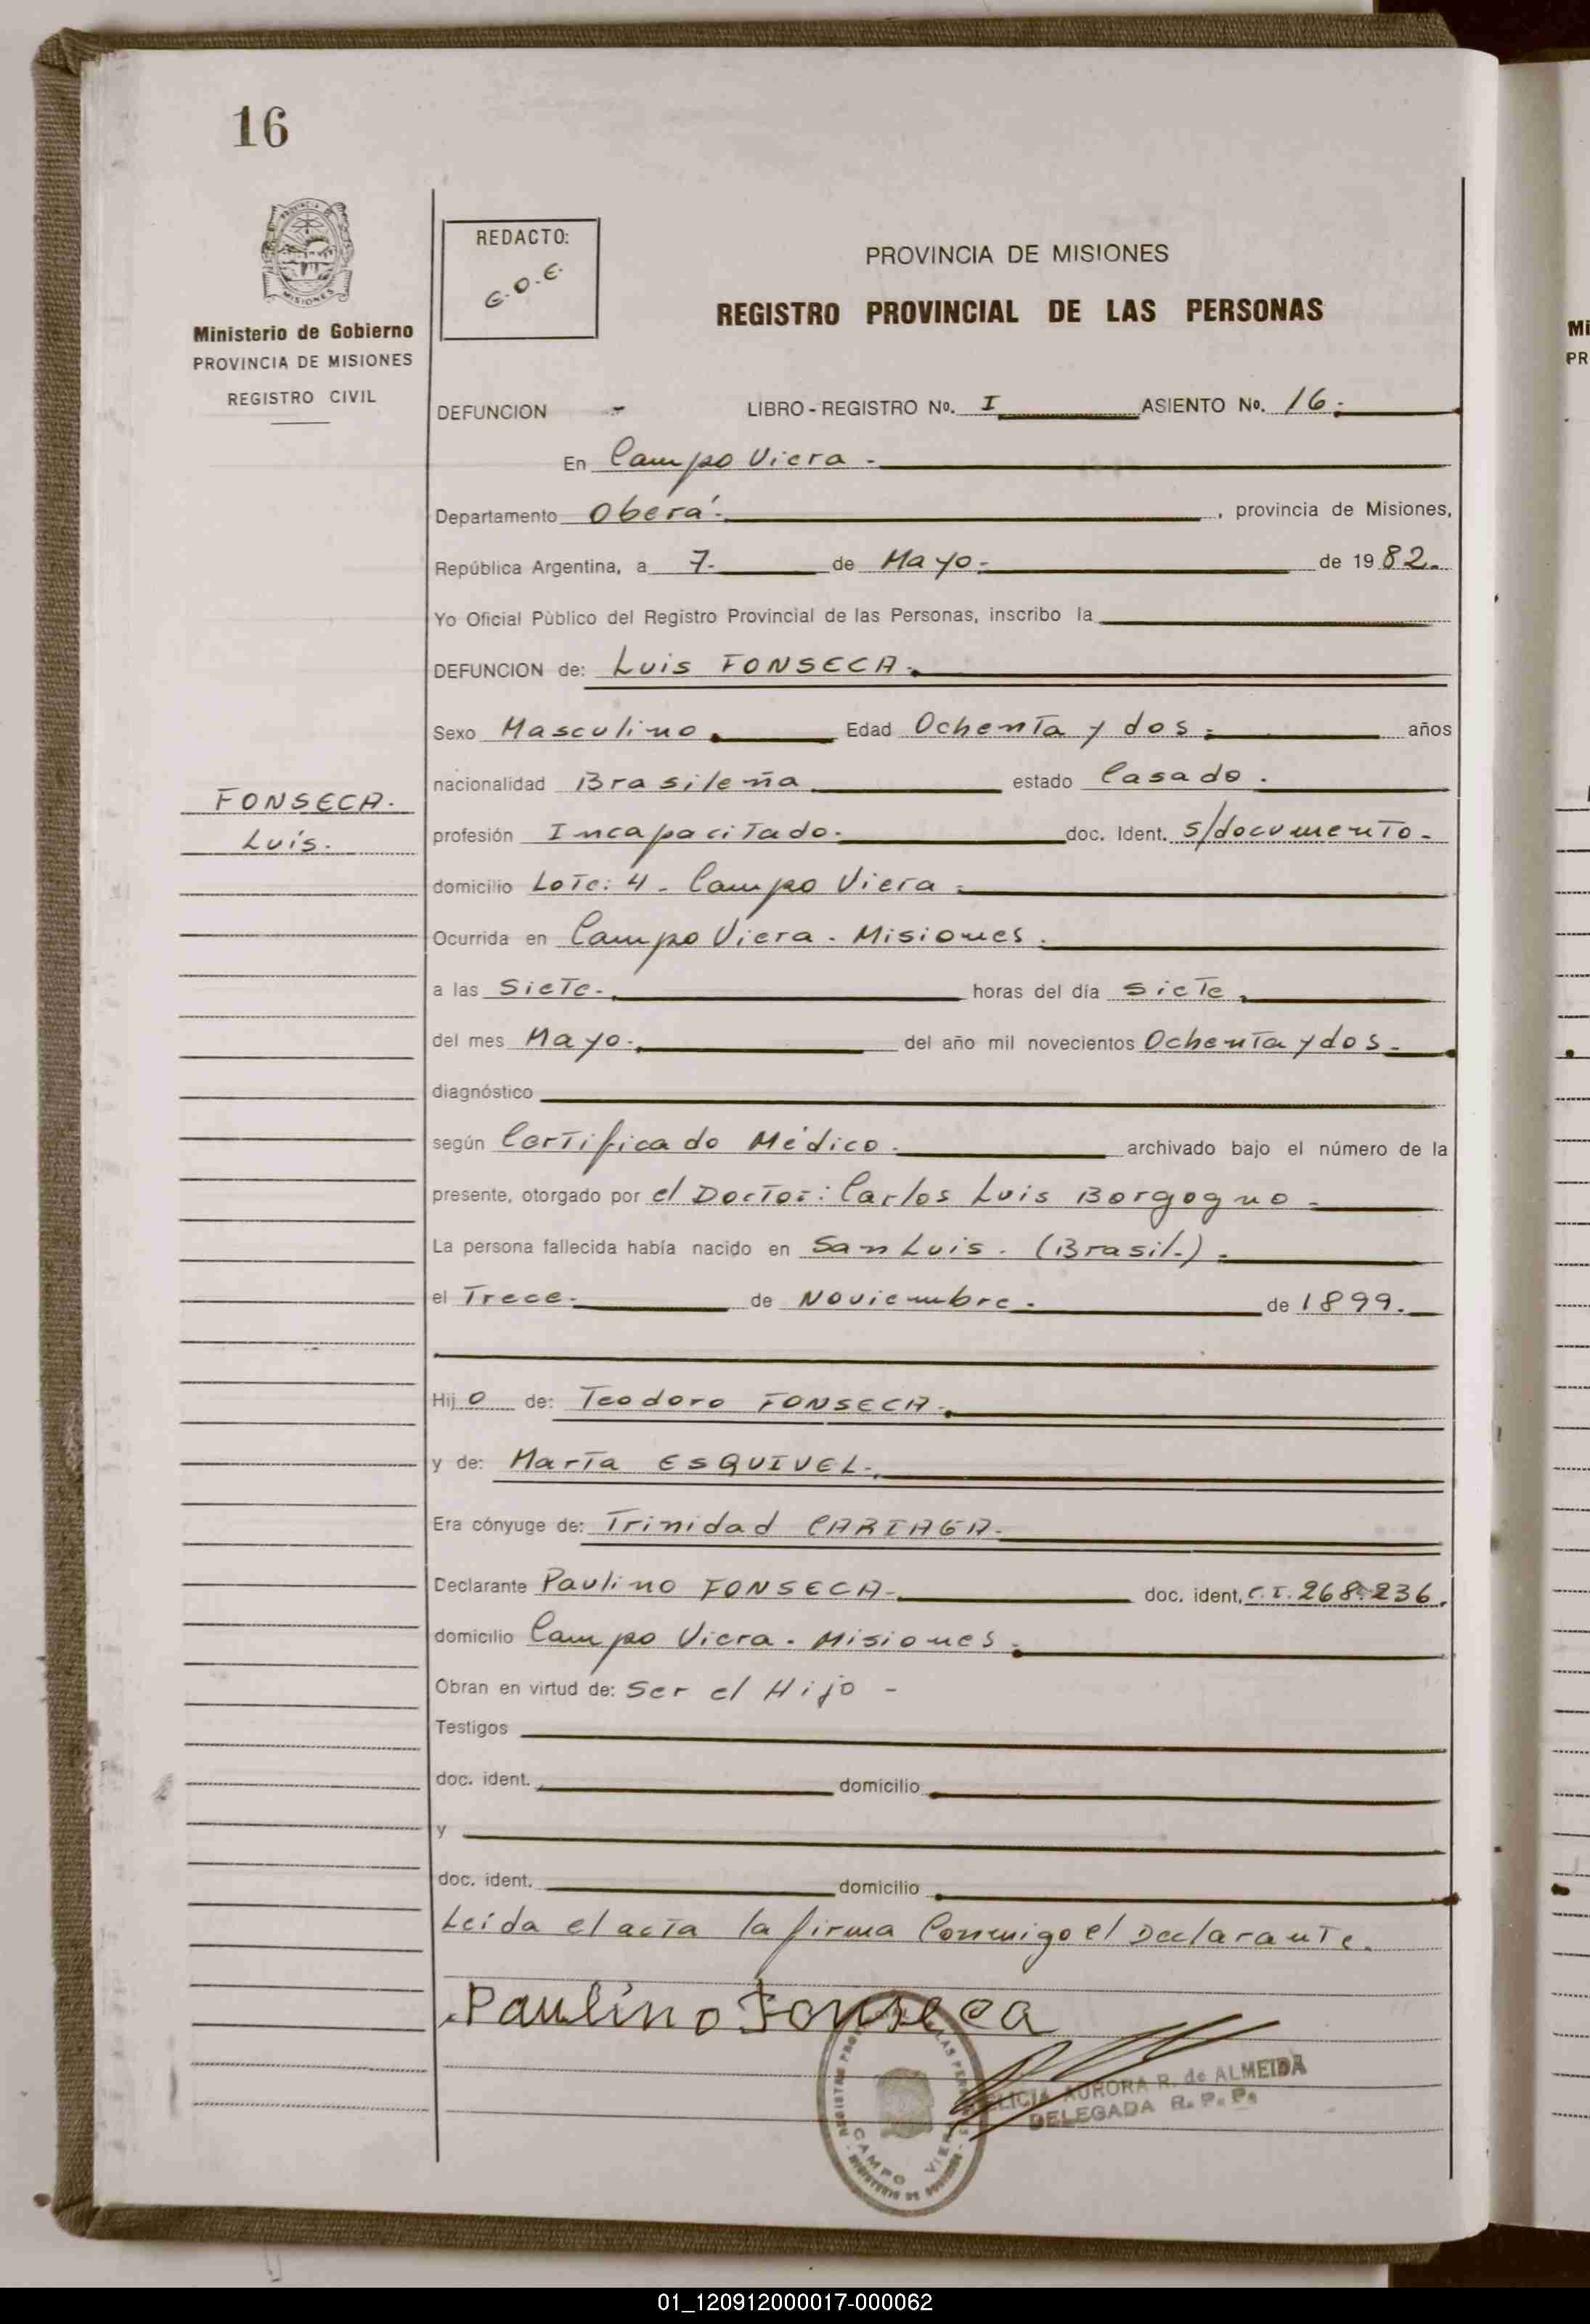 16
PROVINCIA
MISIONES
Ministerio de Gobierno
PROVINCIA DE MISIONES
REGISTRO CIVIL
REDACTO:
G.O.E.
PROVINCIA DE MISIONES
REGISTRO PROVINCIAL DE LAS PERSONAS
DEFUNCION - LIBRO - REGISTRO No. I ASIENTO No. 16.-
En Campo Viera.-
Departamento Oberá.- , provincia de Misiones,
República Argentina, a 7.- de Mayo.- de 1982.-
Yo Oficial Pùblico del Registro Provincial de las Personas, inscribo la
DEFUNCION de: Luis FONSECA.-
Sexo Masculino.- Edad Ochenta y dos.- años
nacionalidad Brasileña estado Casado.
FONSECA.
Luís.
profesión Incapacitado.- doc. Ident. s/documento.-
domicilio Lote: 4 - Campo Viera.-
Ocurrida en Campo Viera - Misiones.
a las Siete.- horas del día siete.-
del mes Mayo.- del año mil novecientos Ochenta y dos.-
diagnóstico
según Certificado Médico.- archivado bajo el número de la
presente, otorgado por el Doctor: Carlos Luis Borgogno.-
La persona fallecida había nacido en San Luis. (Brasil.).-
el Trece.- de Noviembre.- de 1899.-
Hijo de: Teodoro FONSECA.-
y de: María ESQUIVEL.-
Era cónyuge de: Trinidad CARIAGA.-
Declarante Paulino FONSECA.- doc. ident, C.I. 268.236.
domicilio Campo Viera - Misiones.-
Obran en virtud de: Ser el Hijo -
Testigos
doc. ident. domicilio
y
doc. ident. domicilio
Leída el acta la firma Conmigo el Declarante.
Paulino Fonseca
LICIA AURORA R. de ALMEIDA
DELEGADA R. P. P.
CAMPO VIERA
Mi
PR
01_120912000017-000062